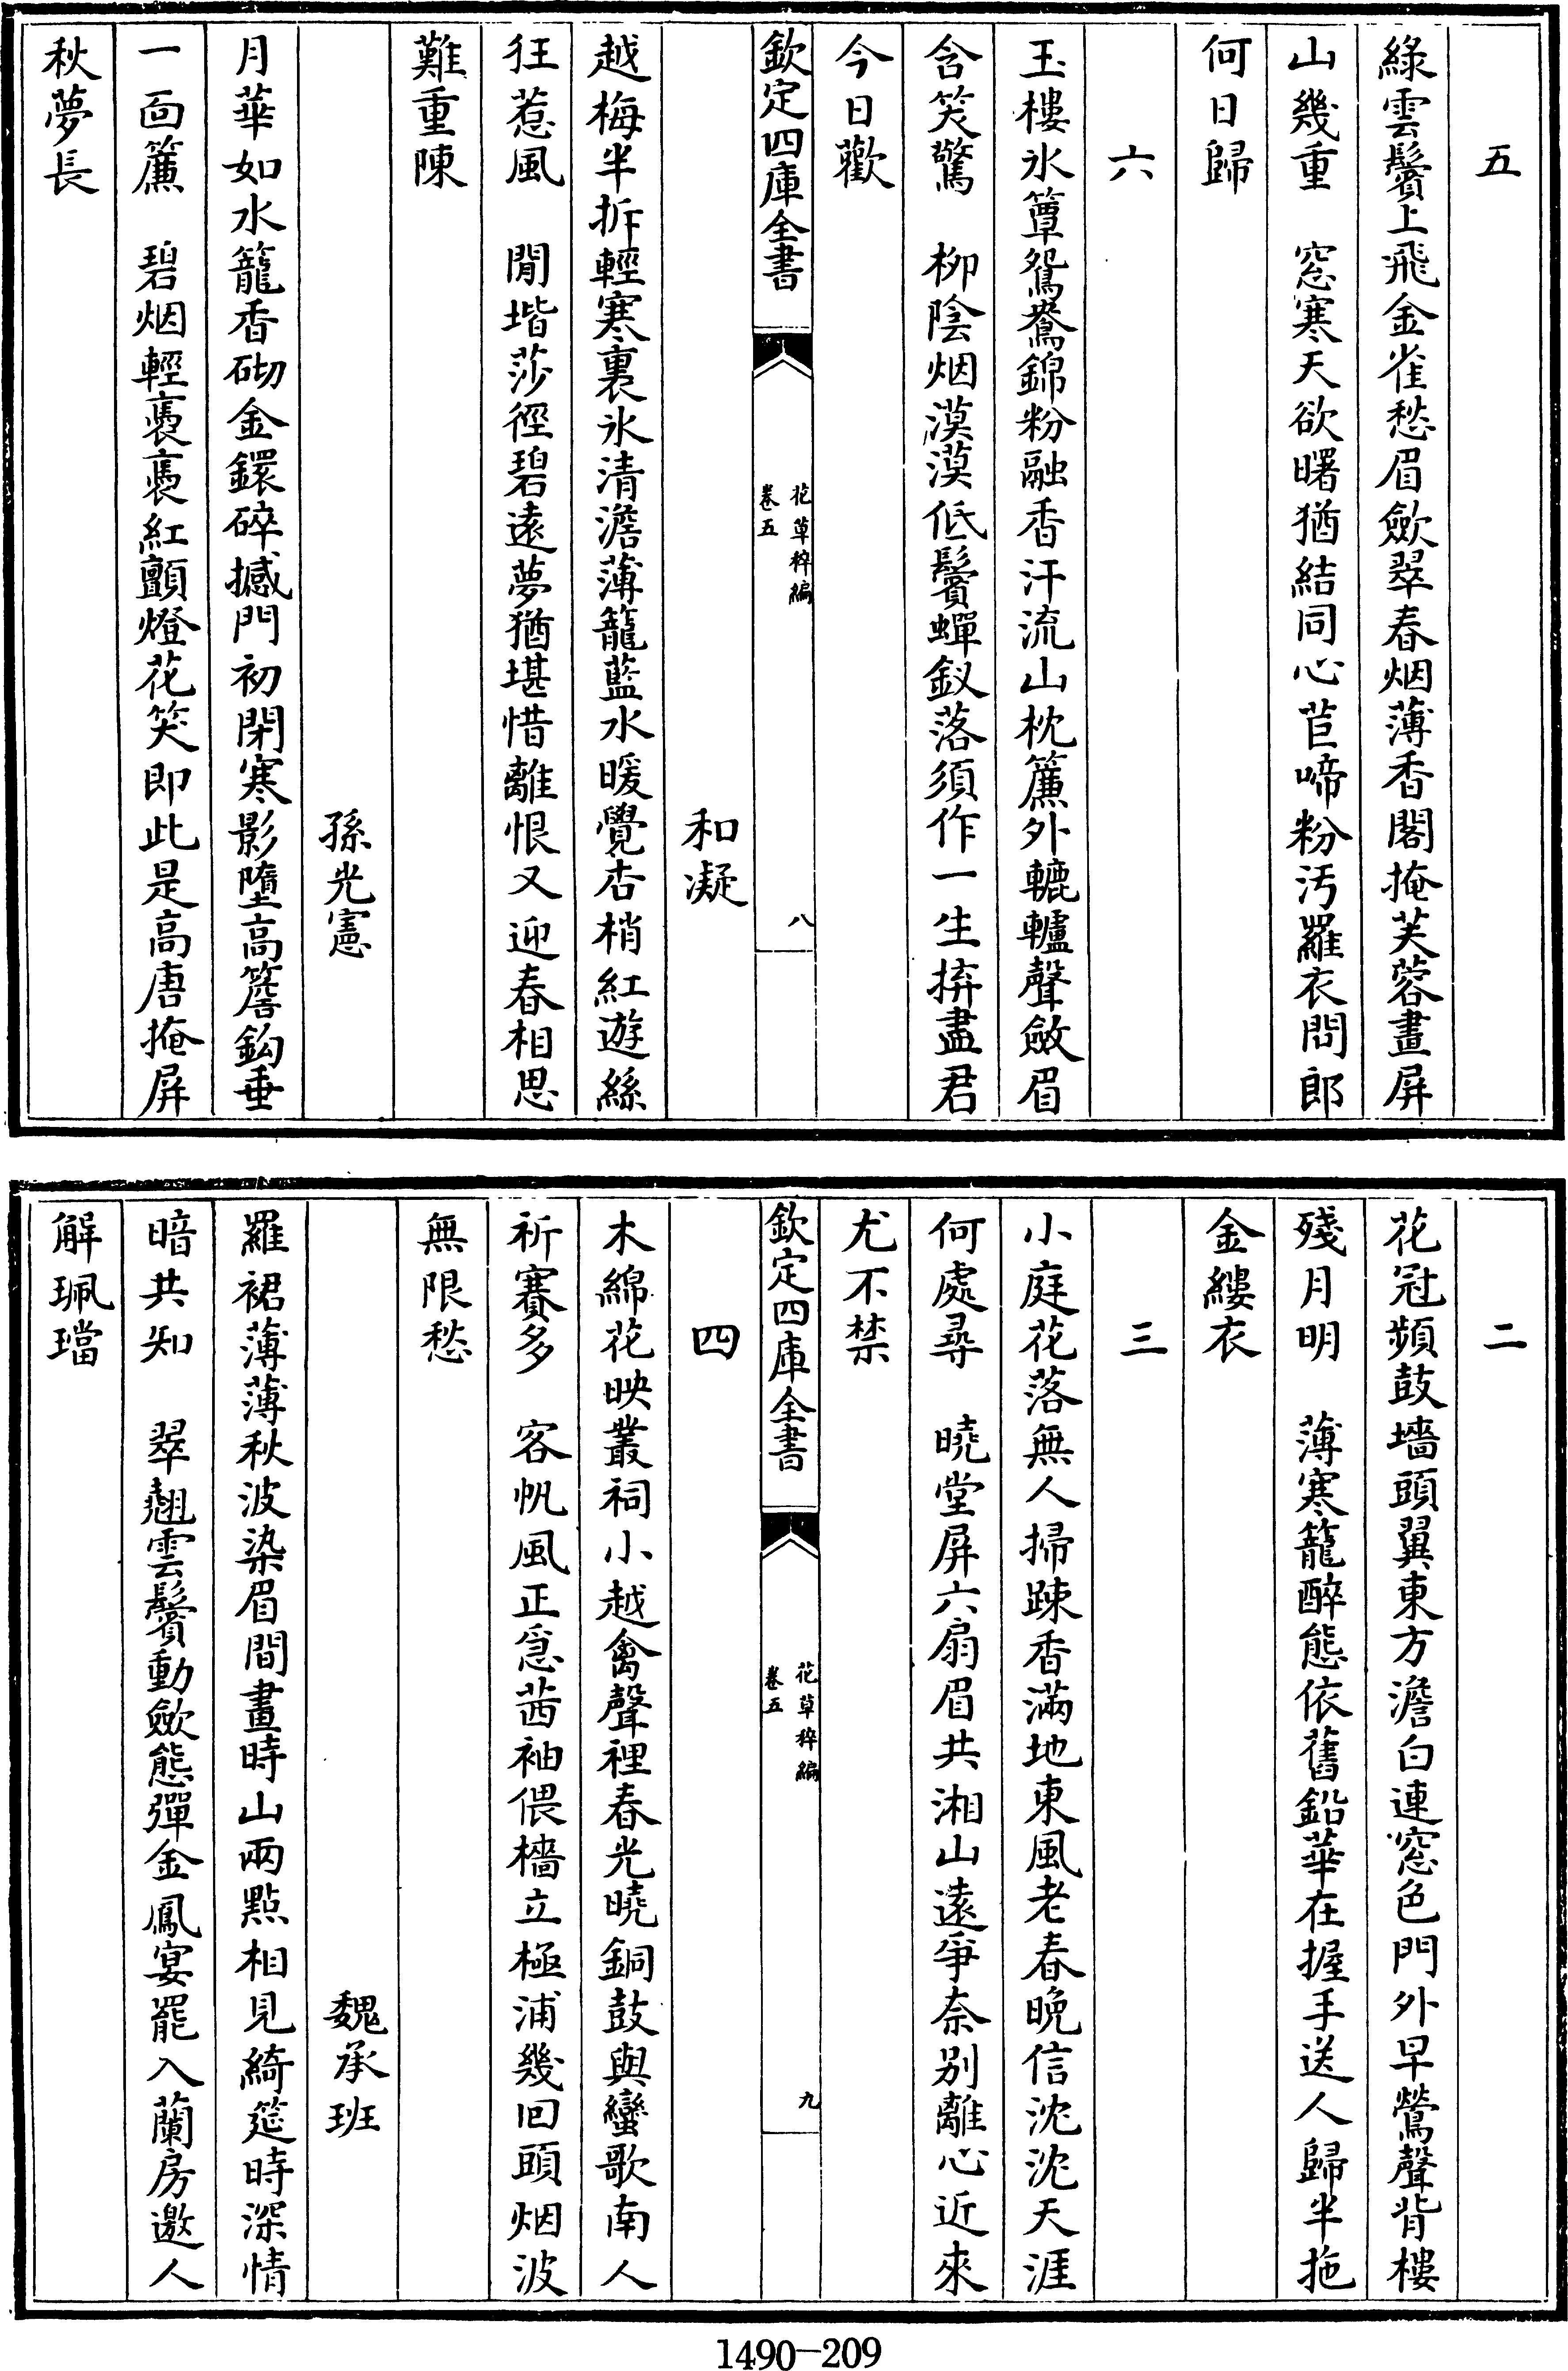 五
綠雲鬢上飛金雀愁眉歛翠春烟薄香閣掩芙蓉畫屏
山幾重　窓寒天欲曙猶結同心苣啼粉汚羅衣問郎
何日歸
六
玉樓氷簟鴛鴦錦粉融香汗流山枕簾外轆轤聲斂眉
含笑驚　柳陰烟漠漠低鬢蟬釵落須作一生拚盡君
今日歡
欽定四庫全書
花草稡編
卷五
八
和凝
越梅半拆輕寒裏氷清澹薄籠藍水暖覺杏梢紅遊絲
狂惹風　閒堦莎徑碧遠夢猶堪惜離恨又迎春相思
難重陳
孫光憲
月華如水籠香砌金鐶碎撼門初閉寒影墮高簷鈎垂
一面簾　碧烟輕裊裊紅顫燈花笑即此是高唐掩屏
秋夢長
二
花冠頻鼓墻頭翼東方澹白連窓色門外早鶯聲背樓
殘月明　薄寒籠醉態依舊鉛華在握手送人歸半拖
金縷衣
三
小庭花落無人掃踈香滿地東風老春晚信沈沈天涯
何處尋　曉堂屏六扇眉共湘山遠爭奈别離心近來
尤不禁
欽定四庫全書
花草稡編
卷五
九
四
木綿花映叢祠小越禽聲裡春光曉銅鼓與蠻歌南人
祈賽多　客帆風正急茜袖偎檣立極浦幾回頭烟波
無限愁
魏承班
羅裙薄薄秋波染眉間畫時山兩點相見綺筵時深情
暗共知　翠翹雲鬢動歛態彈金鳳宴罷入蘭房邀人
解珮璫
1490-209